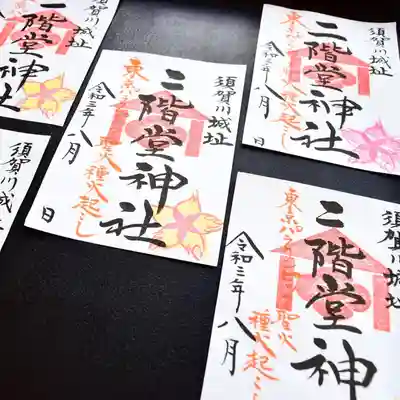 須賀川城址
二階堂神社
令和三年八月
日
須賀川城址
二階堂神社
東京パラリンピック聖火
種火起こし
令和三年八月
日
須賀川城址
二階堂神社
東京パラリンピック聖火
種火起こし
令和三年八月
須賀川城址
日
須賀川城址
二階堂神
東京パラリンピック聖火
種火起こし
令和三年八月